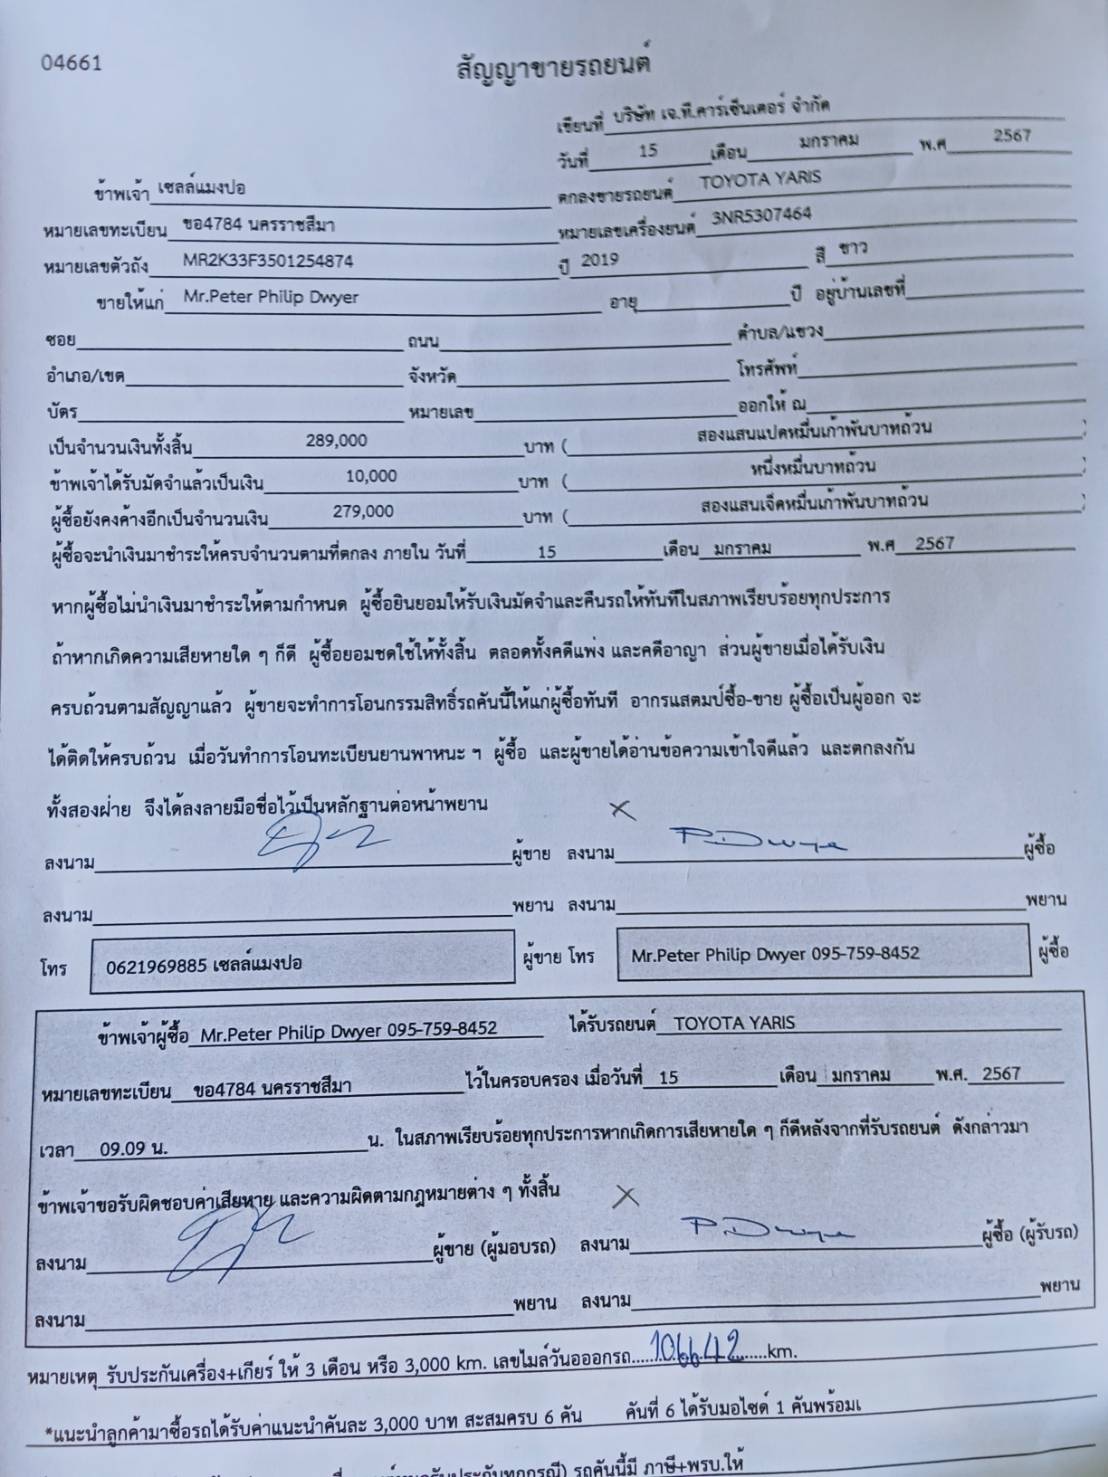 04661
สัญญาขายรถยนต์
เขียนที่ บริษัท เจ.ที.คาร์เซ็นเตอร์ จำกัด
วันที่ 15 เดือน มกราคม พ.ศ 2567
ข้าพเจ้า เซลล์แมงปอ ตกลงขายรถยนต์ TOYOTA YARIS
หมายเลขทะเบียน ขอ4784 นครราชสีมา หมายเลขเครื่องยนต์ 3NR5307464
หมายเลขตัวถัง MR2K33F3501254874 ปี 2019 สี ขาว
ขายให้แก่ Mr.Peter Philip Dwyer อายุ ปี อยู่บ้านเลขที่
ซอย ถนน ตำบล/แขวง
อำเภอ/เขต จังหวัด โทรศัพท์
บัตร หมายเลข ออกให้ ณ
เป็นจำนวนเงินทั้งสิ้น 289,000 บาท ( สองแสนแปดหมื่นเก้าพันบาทถ้วน )
ข้าพเจ้าได้รับมัดจำแล้วเป็นเงิน 10,000 บาท ( หนึ่งหมื่นบาทถ้วน )
ผู้ซื้อยังคงค้างอีกเป็นจำนวนเงิน 279,000 บาท ( สองแสนเจ็ดหมื่นเก้าพันบาทถ้วน )
ผู้ซื้อจะนำเงินมาชำระให้ครบจำนวนตามที่ตกลง ภายใน วันที่ 15 เดือน มกราคม พ.ศ 2567
หากผู้ซื้อไม่นำเงินมาชำระให้ตามกำหนด ผู้ซื้อยินยอมให้รับเงินมัดจำและคืนรถให้ทันทีในสภาพเรียบร้อยทุกประการ
ถ้าหากเกิดความเสียหายใด ๆ ก็ดี ผู้ซื้อยอมชดใช้ให้ทั้งสิ้น ตลอดทั้งคดีแพ่ง และคดีอาญา ส่วนผู้ขายเมื่อได้รับเงิน
ครบถ้วนตามสัญญาแล้ว ผู้ขายจะทำการโอนกรรมสิทธิ์รถคันนี้ให้แก่ผู้ซื้อทันที อากรแสตมป์ซื้อ-ขาย ผู้ซื้อเป็นผู้ออก จะ
ได้ติดให้ครบถ้วน เมื่อวันทำการโอนทะเบียนยานพาหนะ ฯ ผู้ซื้อ และผู้ขายได้อ่านข้อความเข้าใจดีแล้ว และตกลงกัน
ทั้งสองฝ่าย จึงได้ลงลายมือชื่อไว้เป็นหลักฐานต่อหน้าพยาน X
ลงนาม ผู้ขาย ลงนาม P. Dwyer ผู้ซื้อ
ลงนาม พยาน ลงนาม พยาน
โทร 0621969885 เซลล์แมงปอ ผู้ขาย โทร Mr.Peter Philip Dwyer 095-759-8452 ผู้ซื้อ
ข้าพเจ้าผู้ซื้อ Mr.Peter Philip Dwyer 095-759-8452 ได้รับรถยนต์ TOYOTA YARIS
หมายเลขทะเบียน ขอ4784 นครราชสีมา ไว้ในครอบครอง เมื่อวันที่ 15 เดือน มกราคม พ.ศ. 2567
เวลา 09.09 น. น. ในสภาพเรียบร้อยทุกประการหากเกิดการเสียหายใด ๆ ก็ดีหลังจากที่รับรถยนต์ ดังกล่าวมา
ข้าพเจ้าขอรับผิดชอบค่าเสียหาย และความผิดตามกฎหมายต่าง ๆ ทั้งสิ้น X
ลงนาม ผู้ขาย (ผู้มอบรถ) ลงนาม P. Dwyer ผู้ซื้อ (ผู้รับรถ)
ลงนาม พยาน ลงนาม พยาน
หมายเหตุ รับประกันเครื่อง+เกียร์ ให้ 3 เดือน หรือ 3,000 km. เลขไมล์วันอออกรถ......106642......km.
*แนะนำลูกค้ามาซื้อรถได้รับค่าแนะนำคันละ 3,000 บาท สะสมครบ 6 คัน คันที่ 6 ได้รับมอไซด์ 1 คันพร้อมเ
รับประกันทุกกรณี) รถคันนี้มี ภาษี+พรบ.ให้